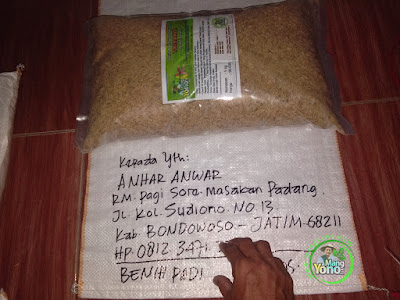 Kepada Yth:
ANHAR ANWAR
RM. Pagi Sore Masakan Padang
JL. Kol. Sudiono No. 13
Kab BONDOWOSO - JATIM 68211
HP. 0812 3471
BENIH PADI
Mang
Yono